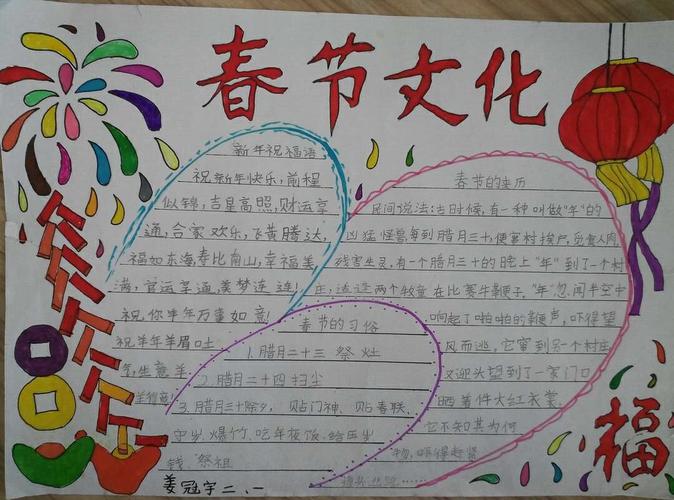 春节文化
新年祝福语
祝新年快乐,前程
似锦,吉星高照,财运亨
通,合家欢乐,飞黄腾达,
福如东海,寿比南山,幸福美
满,官运亨通,美梦连连!
祝,你羊年万事如意!
祝羊年羊眉吐
气,生意羊
羊得意!
春节的来历
民间说法:古时候,有一种叫做"年"的
凶猛怪兽,每到腊月三十,便窜村挨户,觅食人肉,
残害生灵,有一个腊月三十的晚上"年"到了一个村
庄,适逢两个牧童在比赛牛鞭子,"年"忽闻半空中
响起了啪啪的鞭声,吓得望
风而逃,它窜到另一个村庄
又迎头望到了一家门口
晒着件大红衣裳
它不知其为何
物,吓得赶紧
掉头
春节的习俗
1.腊月二十三 祭灶
2.腊月二十四 扫尘
3.腊月三十除夕,贴门神、贴春联、
守岁、爆竹、吃年夜饭、给压岁
钱、祭祖
姜冠宇 二、一
福